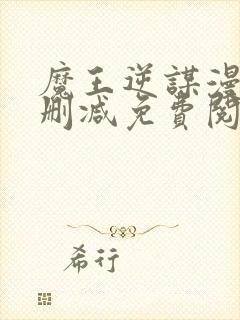 魔王逆謀漫
刪減免費閱
希行